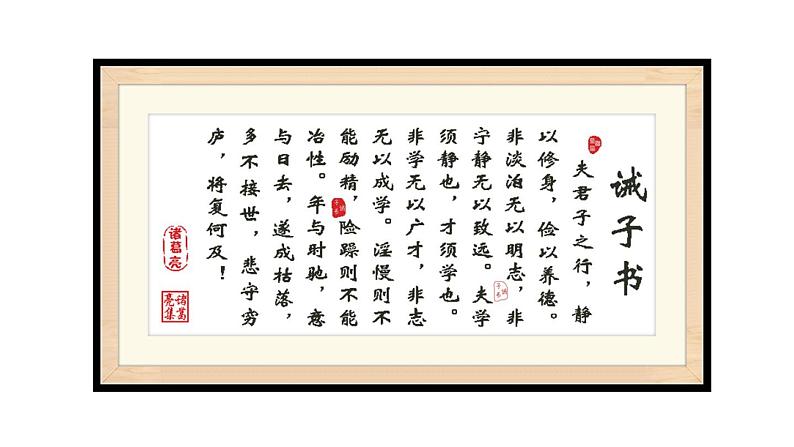 诫子书
夫君子之行，静
以修身，俭以养德。
非淡泊无以明志，非
宁静无以致远。夫学
须静也，才须学也。
非学无以广才，非志
无以成学。淫慢则不
能励精，险躁则不能
冶性。年与时驰，意
与日去，遂成枯落，
多不接世，悲守穷
庐，将复何及！
诸葛亮
诸葛亮集